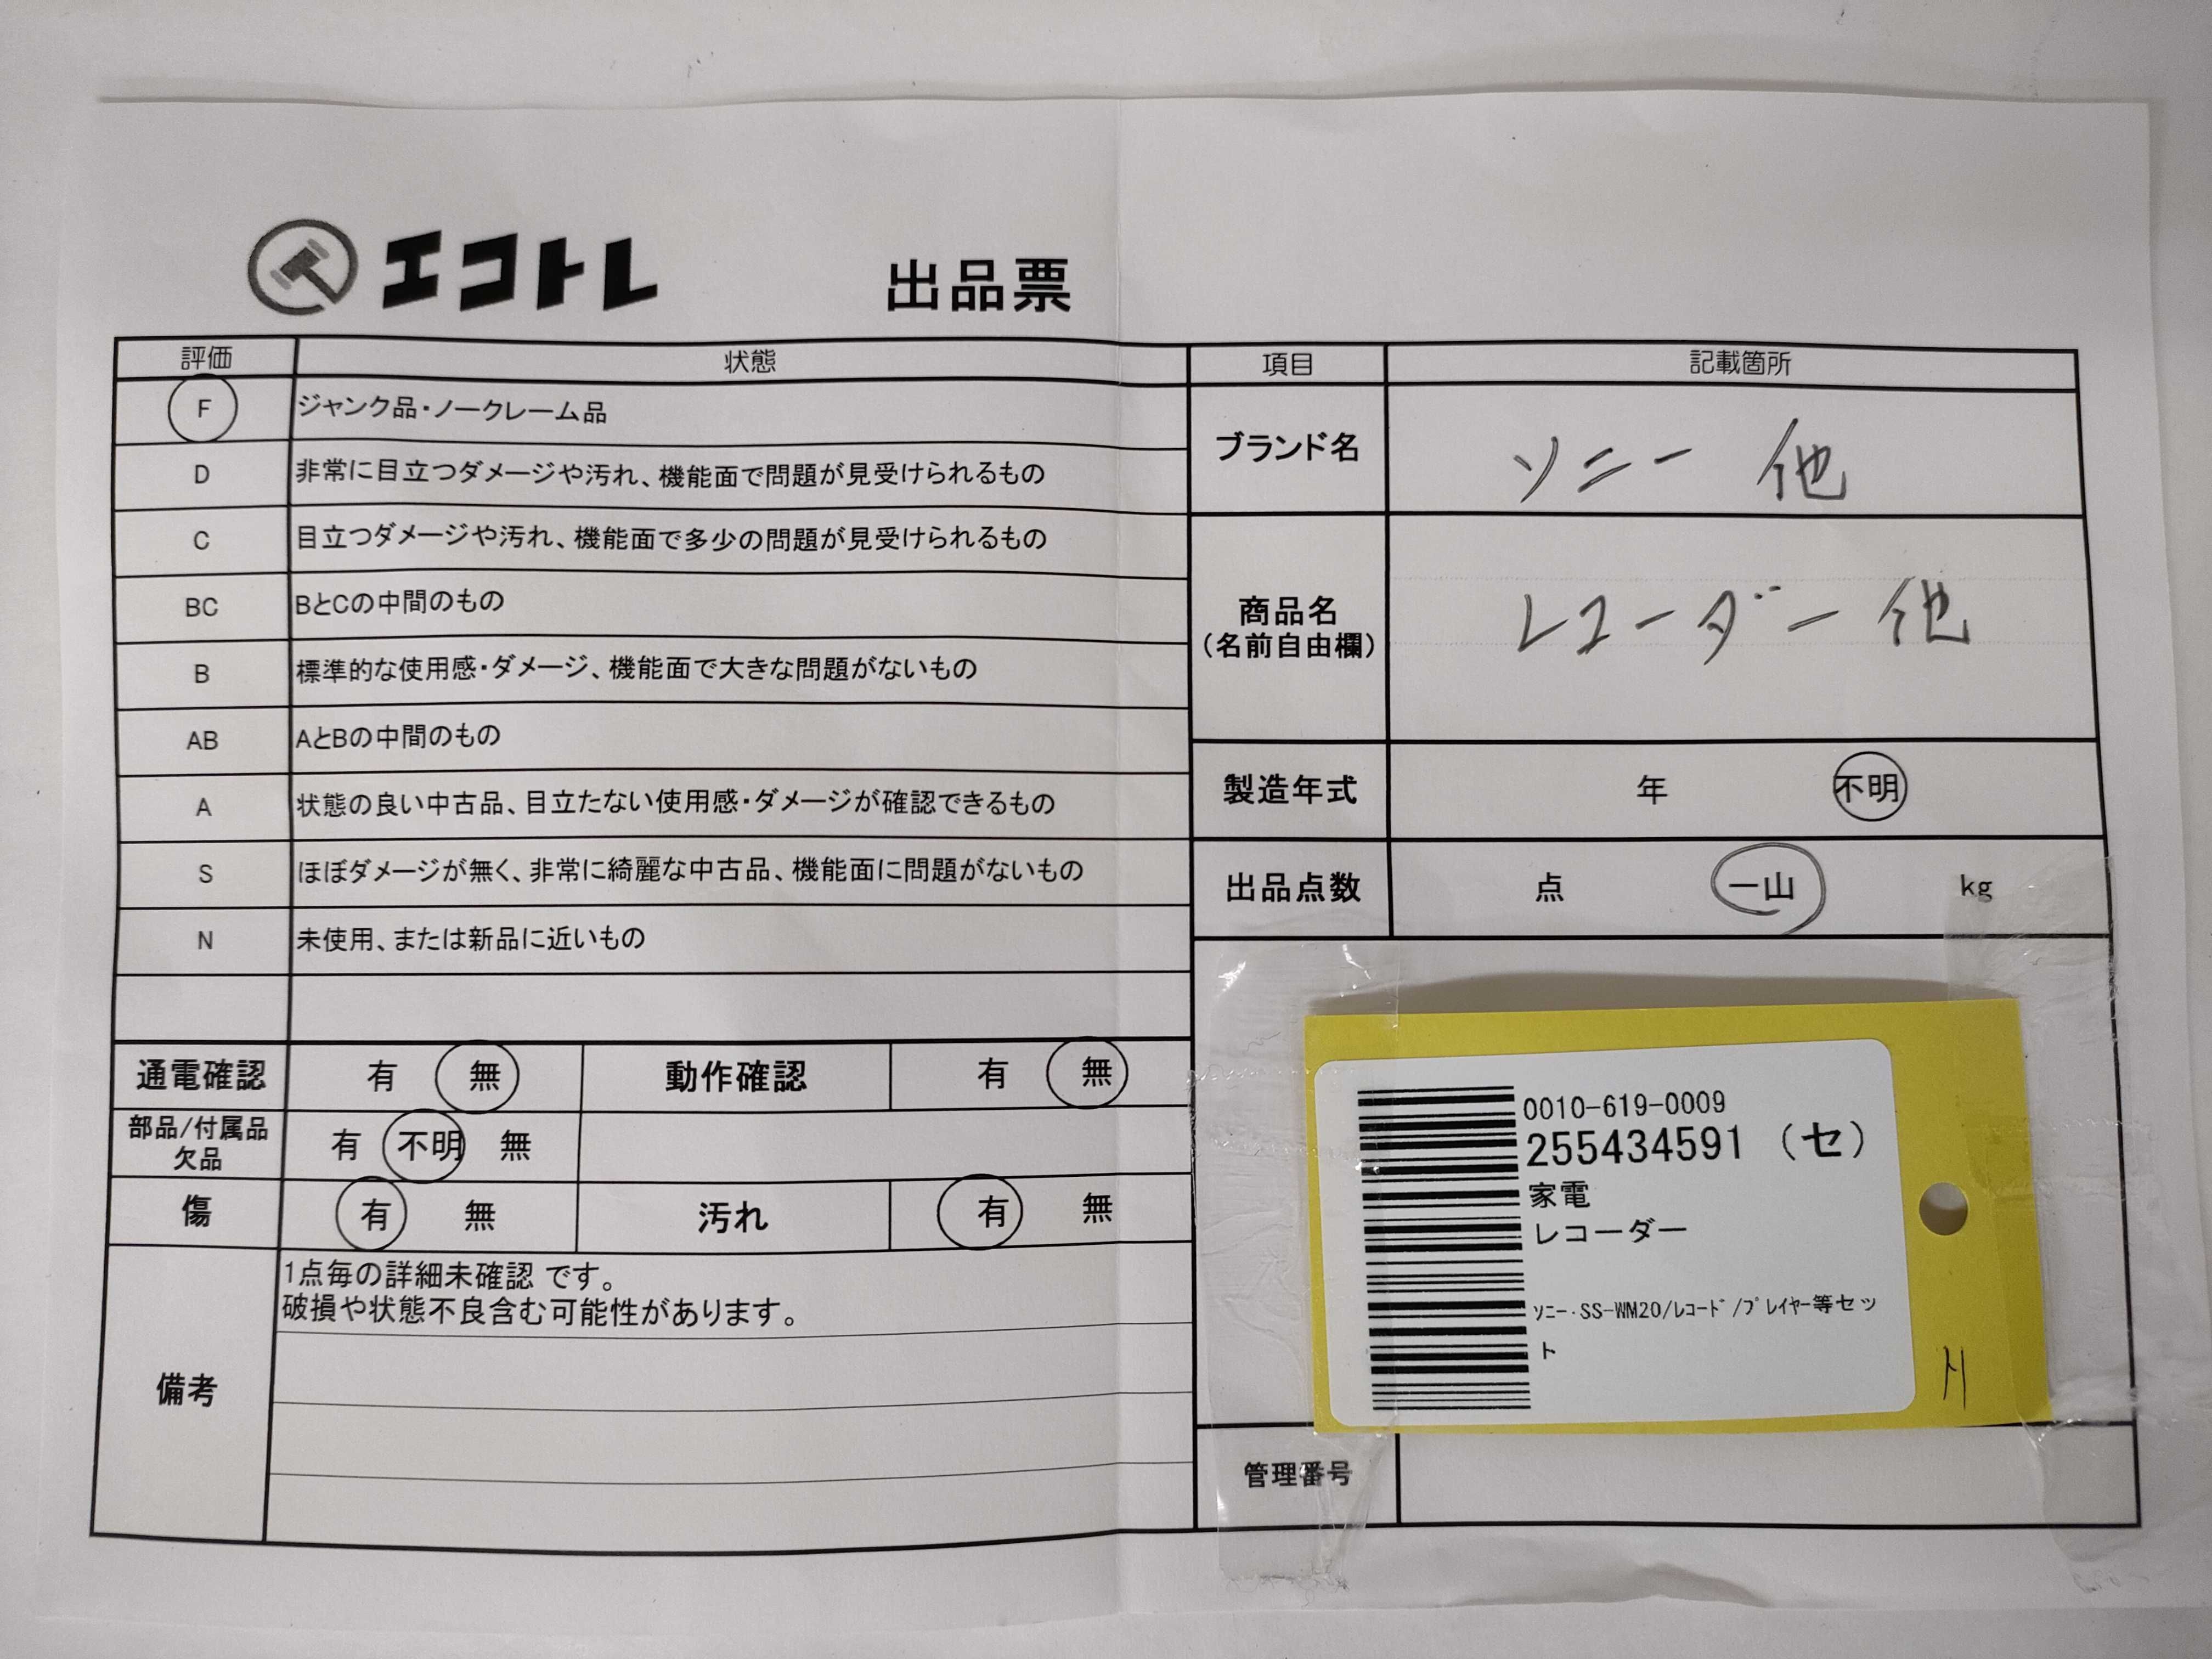 エコトレ 出品票
評価 状態
F ジャンク品・ノークレーム品
D 非常に目立つダメージや汚れ、機能面で問題が見受けられるもの
C 目立つダメージや汚れ、機能面で多少の問題が見受けられるもの
BC BとCの中間のもの
B 標準的な使用感・ダメージ、機能面で大きな問題がないもの
AB AとBの中間のもの
A 状態の良い中古品、目立たない使用感・ダメージが確認できるもの
S ほぼダメージが無く、非常に綺麗な中古品、機能面に問題がないもの
N 未使用、または新品に近いもの
通電確認 有 無 動作確認 有 無
部品/付属品
欠品 有 不明 無
傷 有 無 汚れ 有 無
備考
1点毎の詳細未確認 です。
破損や状態不良含む可能性があります。
項目 記載箇所
ブランド名 ソニー 他
商品名
(名前自由欄) レコーダー 他
製造年式 年 不明
出品点数 点 一山 kg
0010-619-0009
255434591 (セ)
家電
レコーダー
ソニー・SS-WM20/レコード/プレイヤー等セッ
ト
管理番号